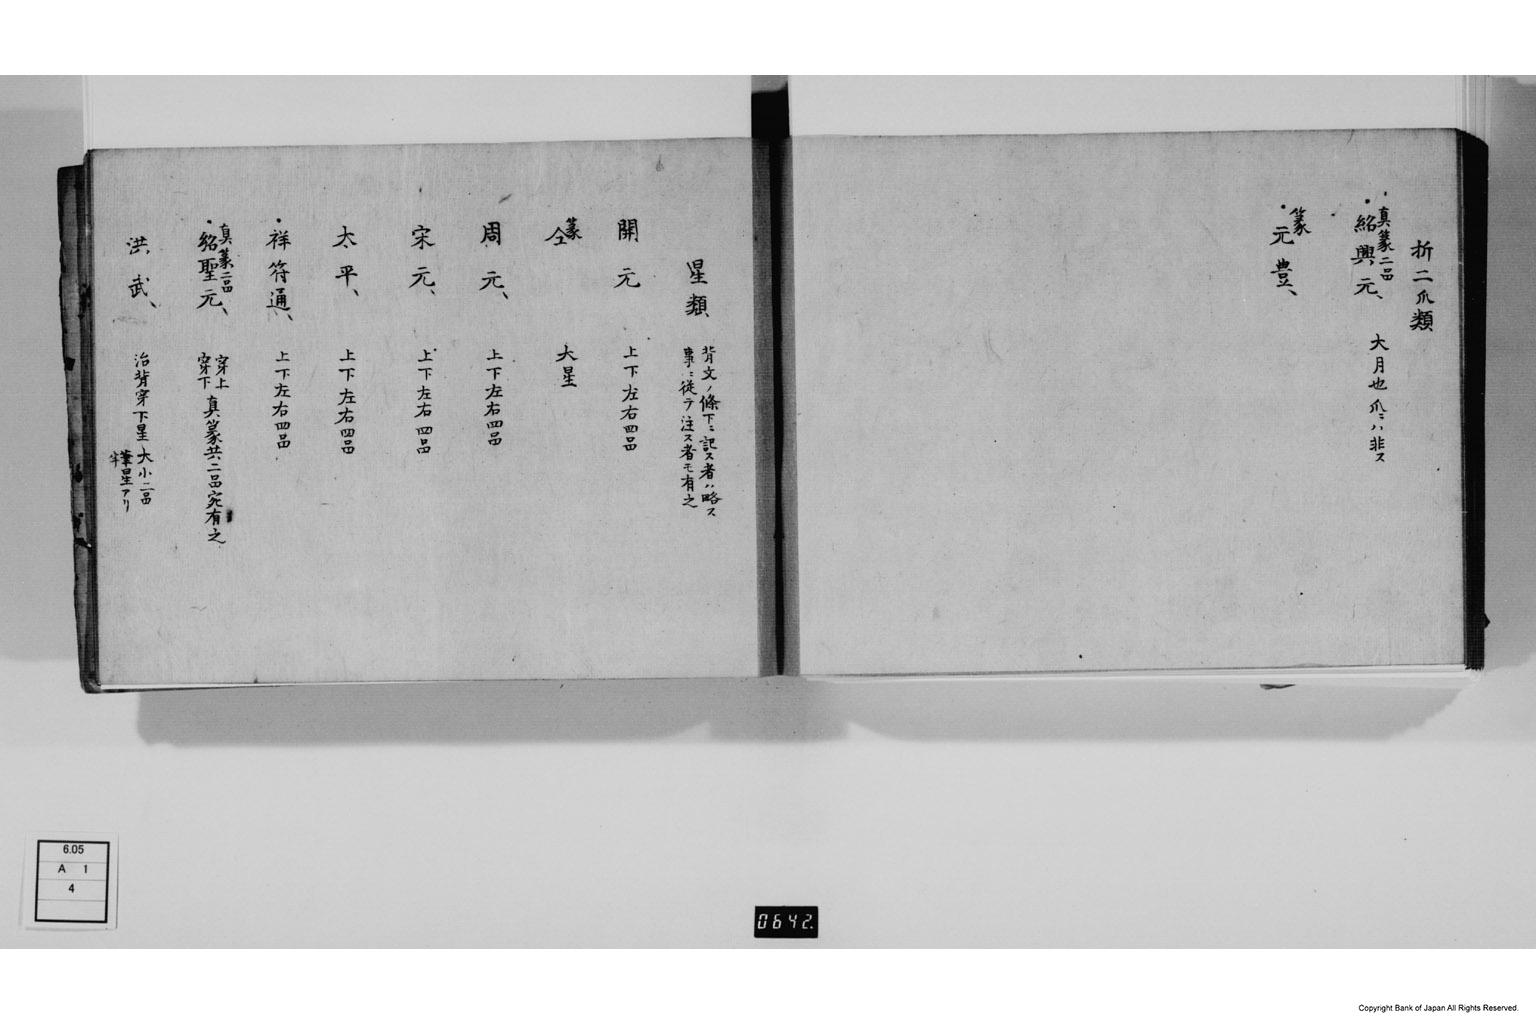 折二爪類
真篆二品
紹興元、
大月也爪ニハ非ス
篆
元豊、
星類
背文ノ條下ニ記ス者ハ略ス
事ニ従テ注ス者モ有之
開元
上下左右四品
篆
仝
大星
周元、
上下左右四品
宋元、
上下左右四品
太平、
上下左右四品
祥符通、
上下左右四品
真篆二品
紹聖元、
穿上
穿下
真篆共二品宛有之
洪武、
治背穿下星
大小二品
筆星アリ
6.05
A 1
4
0642.
Copyright Bank of Japan All Rights Reserved.